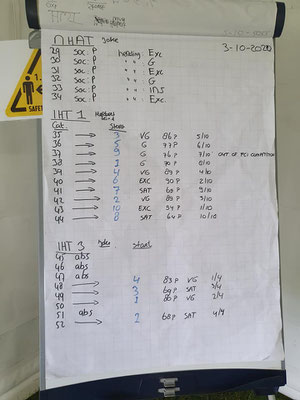 NHAT
3-10-2020
29 Soc: P herding: Exc
30 Soc: P " " : G
31 Soc: P " " : Exc
32 Soc: P " " : G
33 Soc: P " " : INS
34 Soc: P " " : Exc.
IHT 1
Cat. Start
35 3 VG 86 P 5/10
36 5 G 77 P 6/10
37 9 G 76 P 7/10 OUT OF FCI COMPETITION
38 1 G 70 P 8/10
39 4 VG 89 P
40 6 EXC 90 P 2/10
41 7 SAT 9/10
42 2 VG 89 P 3/10
43 10 EXC 94 P 1/10
44 8 SAT 64 P 10/10
IHT 3 Start
45 abs
46 abs
47 abs
48 4 83 P VG 1/4
49 3 69 P SAT 3/4
50 1 80 P VG 2/4
51 abs
52 2 68 P SAT 4/4